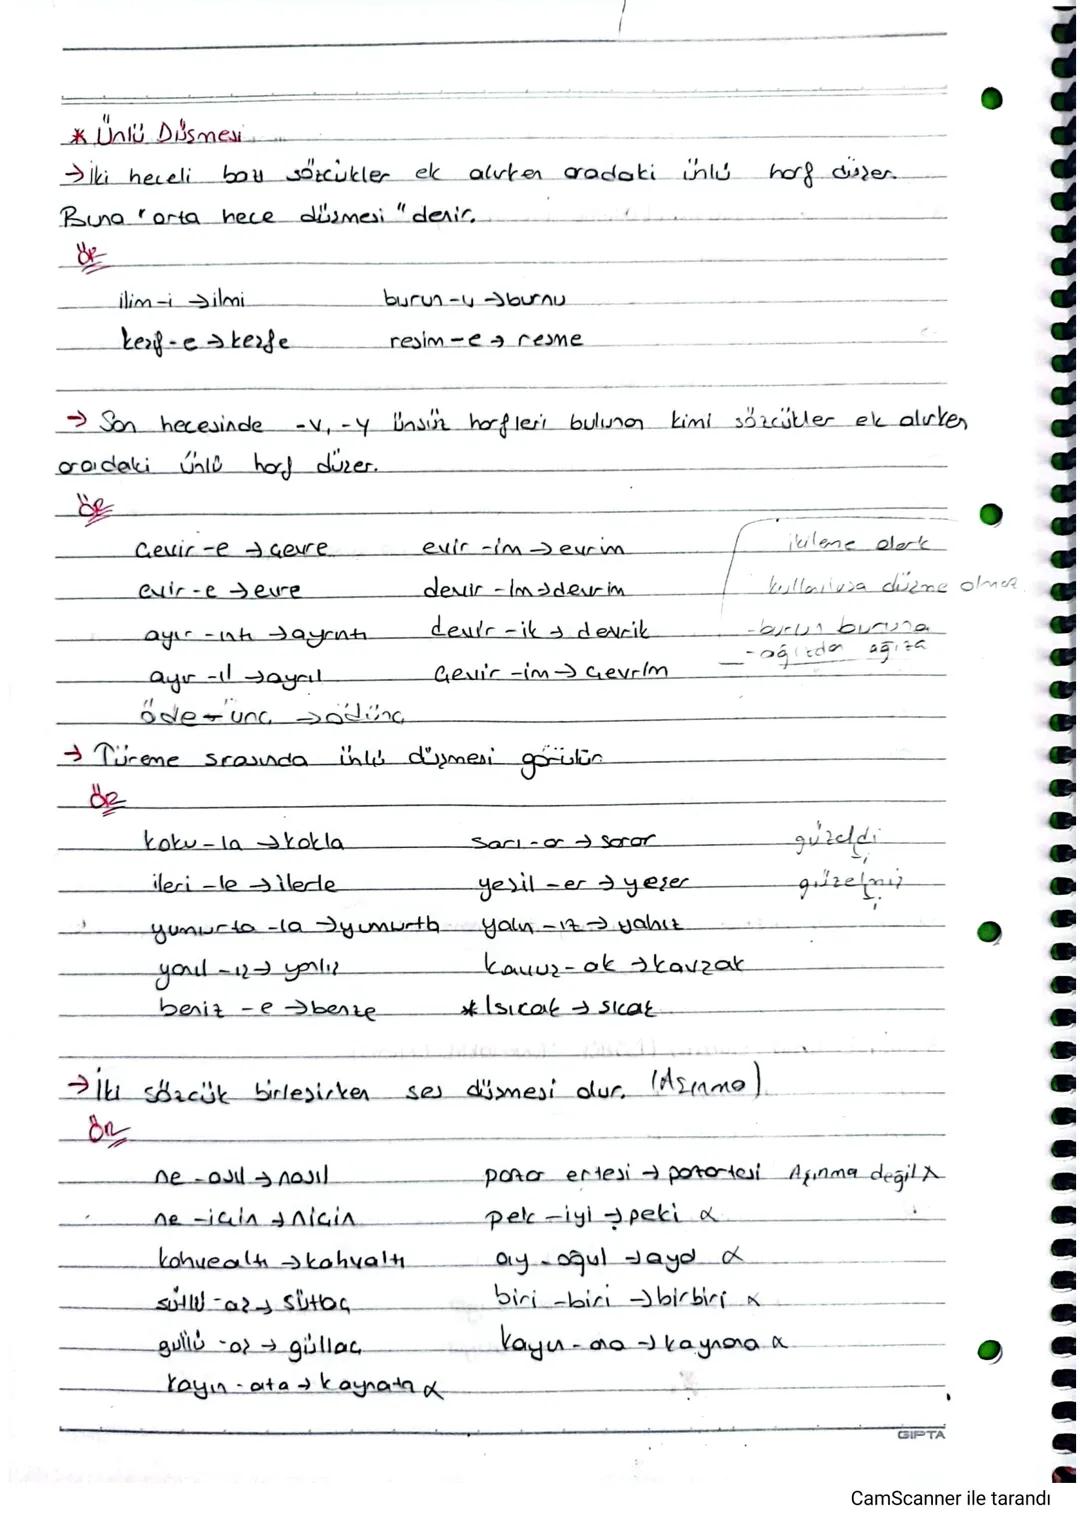 * Ünlü Düşmesi
→ İki heceli bazı sözcükler ek alırken aradaki ünlü harf düşer.
Buna "orta hece düşmesi" denir.
ÖR
ilim-i → ilmi burun-u → burnu
keşif-e → keşfe resim-e → resme
→ Son hecesinde -v, -y ünsüz harfleri bulunan kimi sözcükler ek alırken
aradaki ünlü harf düşer.
ÖR
Çevir-e → çevre evir-im → evrim ikileme olarak
evir-e → evre devir-im → devrim kullanılırsa düşme olmaz
ayır-ıntı → ayrıntı devir-ik → devrik -burun buruna
ayır-ıl → ayrıl Çevir-im → Çevrim -ağızdan ağıza
öde-ünç → ödünç
→ Türeme sırasında ünlü düşmesi görülür
ÖR
koku-la → kokla sarı-ar → sarar güzeldi
i
ileri-le → ilerle yeşil-er → yeşer güzelmiş
i
yumurta-la → yumurtla yalın-ız → yalnız
yanıl-ış → yanlış kavuz-ak → kavzak
beniz-e → benze * Isıcak → sıcak
→ İki sözcük birleşirken ses düşmesi olur. (Aşınma)
ÖR
ne-asıl → nasıl pazar ertesi → pazartesi Aşınma değil α
ne-için → niçin pek-iyi → peki α
kahvealtı → kahvaltı ay-oğul → ayol α
sütlü-aş → sütlaç biri-biri → birbiri α
güllü-aş → güllaç kayın-ana → kaynana α
kayın-ata → kaynata α
GIPTA
CamScanner ile tarandı